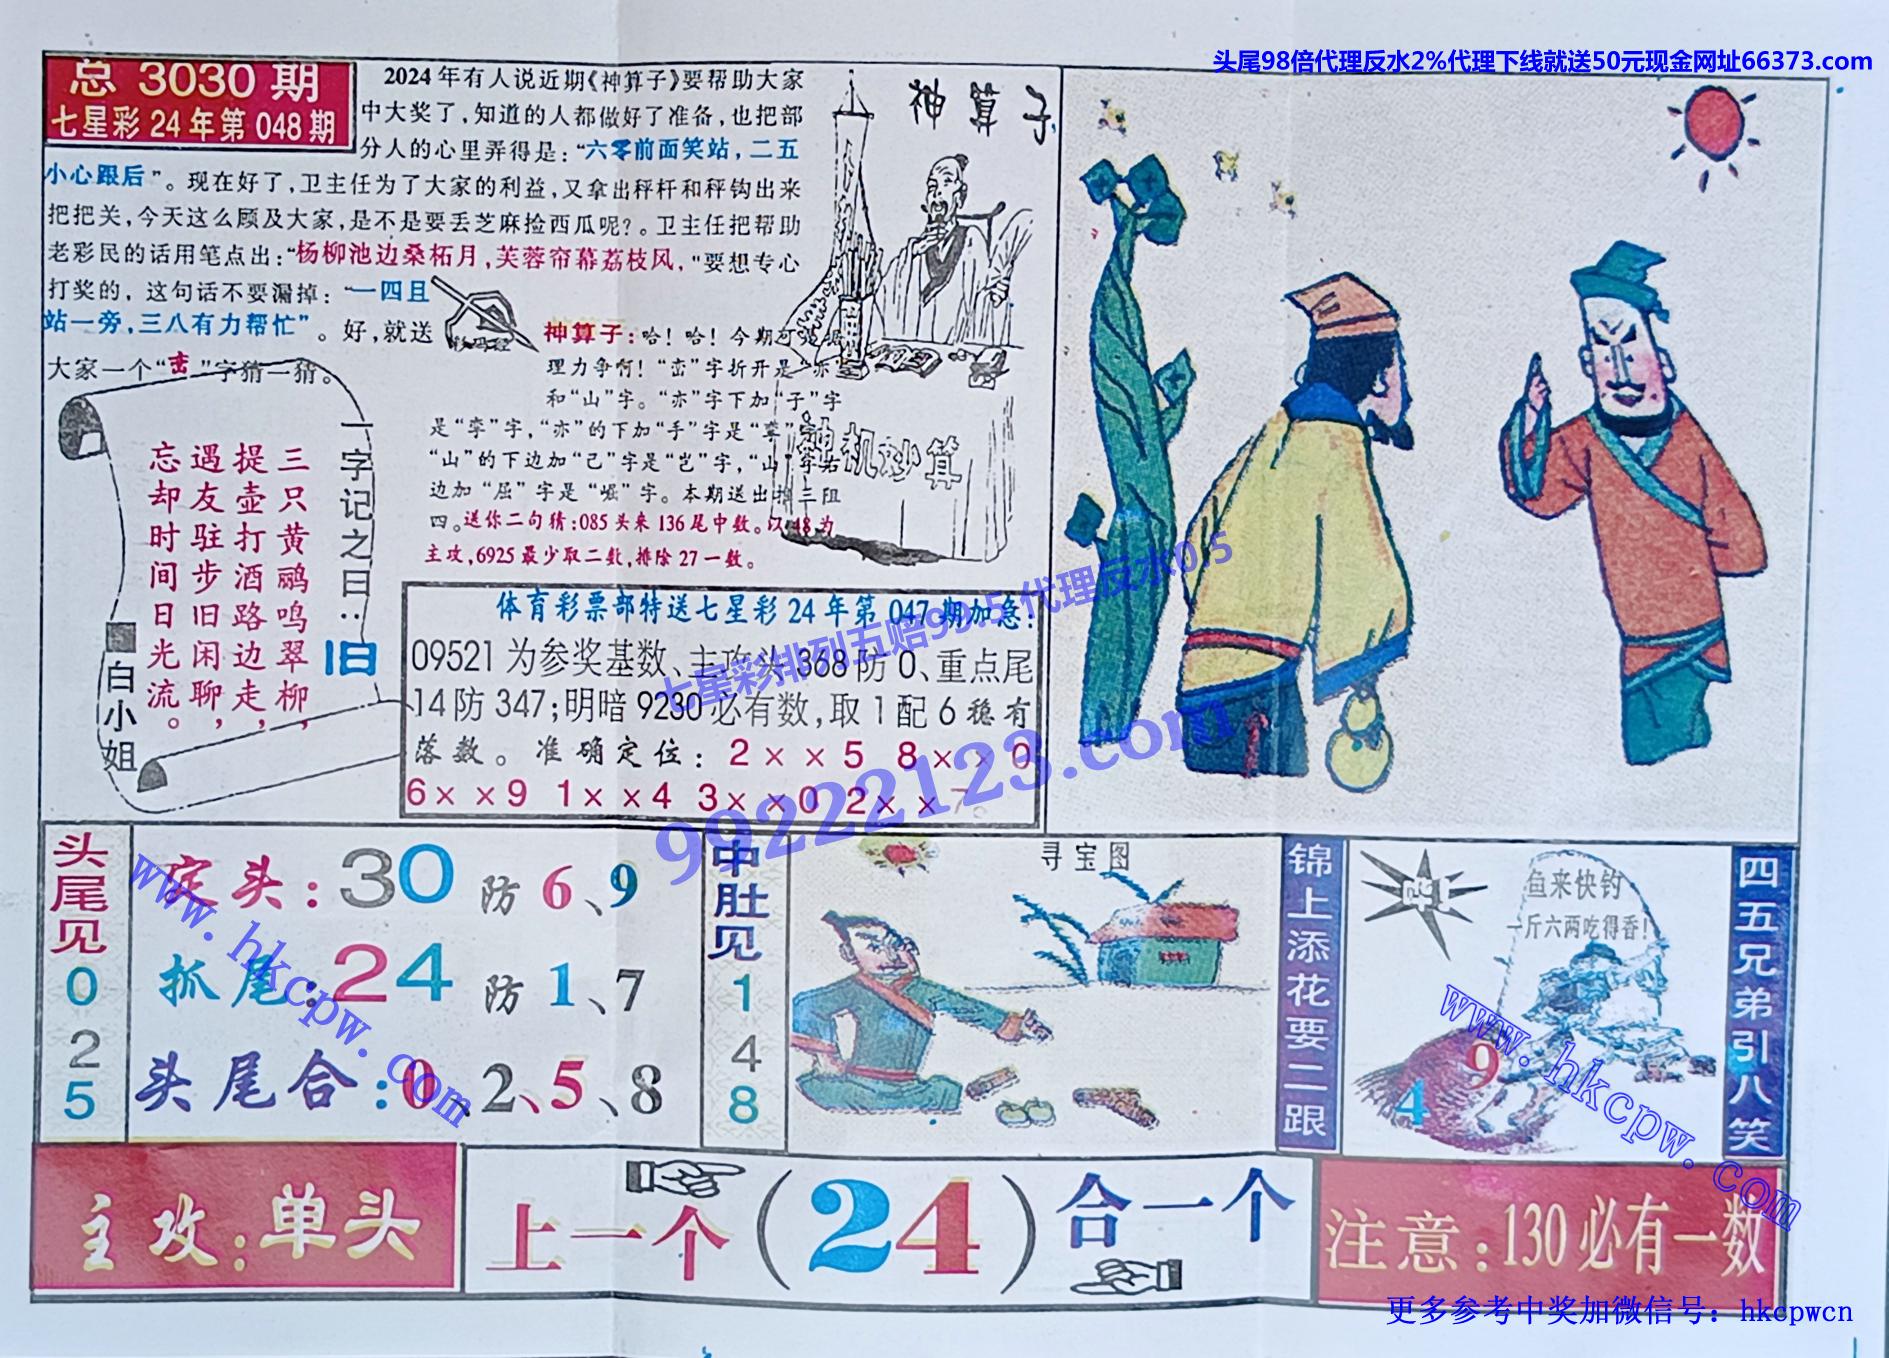 头尾98倍代理反水2%代理下线就送50元现金网址66373.com
总 3030 期
七星彩 24 年第 048 期
2024 年有人说近期《神算子》要帮助大家
中大奖了，知道的人都做好了准备，也把部
分人的心里弄得是：“六零前面笑站，二五
小心跟后”。现在好了，卫主任为了大家的利益，又拿出秤杆和秤钩出来
把把关，今天这么顾及大家，是不是要丢芝麻捡西瓜呢？。卫主任把帮助
老彩民的话用笔点出：“杨柳池边桑柘月，芙蓉帘幕荔枝风，”要想专心
打奖的，这句话不要漏掉：“一四且
站一旁，三八有力帮忙”。好，就送
大家一个“峦”字猜一猜。
神算子
神算子：哈！哈！今期可 据
理力争啊！“峦”字折开是“亦”
和“山”字。“亦”字下加“子”字
是“孪”字，“亦”的下加“手”字是“挛”
“山”的下边加“己”字是“岂”字，“山”字右
边加“屈”字是“崛”字。本期送出 三阻
四。送你二句猜：085 头来 136 尾中数。以 48 为
主攻，6925 最少取二数，排除 27 一数。
神机妙算
一字记之曰：旧
三只黄鹂鸣翠柳，
提壶打酒路边走，
遇友驻步旧闲聊，
忘却时间日光流。
白小姐
体育彩票部特送七星彩 24 年第 047 期加急：
09521 为参奖基数、主攻头 368 防 0、重点尾
14 防 347；明暗 9230 必有数，取 1 配 6 稳有
落数。准确定位：2 × × 5 8 × × 0
6 × × 9 1 × × 4 3 × × 0 2 × × 7。
七星彩排列五赔99.5 代理反水0.5
99222123.com
头尾见
0
2
5
定头：30 防 6、9
抓尾：24 防 1、7
头尾合：0、2、5、8
中肚见
1
4
8
寻宝图
锦上添花要二跟
鱼来快钓
一斤六两吃得香！
9
4
四五兄弟引八笑
www.hkcpw.com
www.hkcpw.com
主攻：单头
上一个（24）合一个
注意：130 必有一数
更多参考中奖加微信号：hkcpwcn